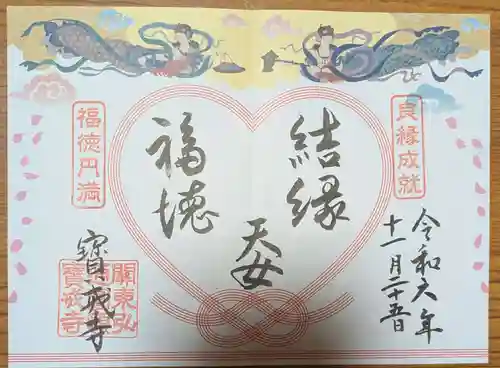 良縁成就
令和六年
十一月二十五日
結縁
天女
福徳
福徳円満
寶戒寺
關東弘
寶戒寺